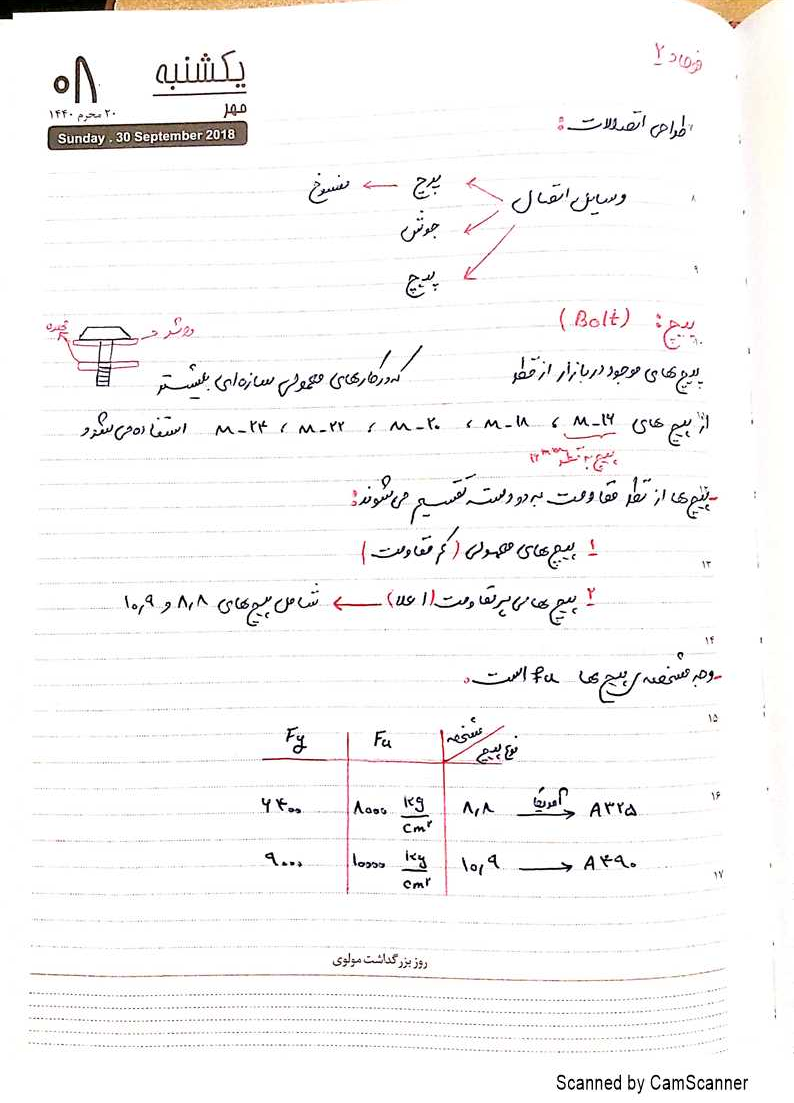 یکشنبه
۰۸
مهر
۲۰ محرم ۱۴۴۰
Sunday . 30 September 2018
فولاد ۲
طراحی اتصالات:
وسایل اتصال
پرچ ← منسوخ
جوش
پیچ
پیچ: (Bolt)
واشر
پیچ های موجود در بازار از قطر
که در کارهای معمولی سازه ای بیشتر
از پیچ های M-16 ، M-18 ، M-20 ، M-22 ، M-24 استفاده می شود
پیچ به قطر
-پیچ ها از نظر مقاومت به دو دسته تقسیم می شوند:
۱ پیچ های معمولی (کم مقاومت)
۲ پیچ های پر مقاومت (اعلا) ← شامل پیچ های ۸,۸ و ۱۰,۹
-وجه مشخصه ی پیچ ها Fu است.
مشخصه
نوع پیچ
Fu
Fy
A۳۲۵ ← آمریکا ۸,۸ ۸۰۰۰ kg/cm² ۶۴۰۰
A۴۹۰ ← ۱۰,۹ ۱۰۰۰۰ kg/cm² ۹۰۰۰
۸
۹
۱۰
۱۳
۱۴
۱۵
۱۶
۱۷
روز بزرگداشت مولوی
Scanned by CamScanner